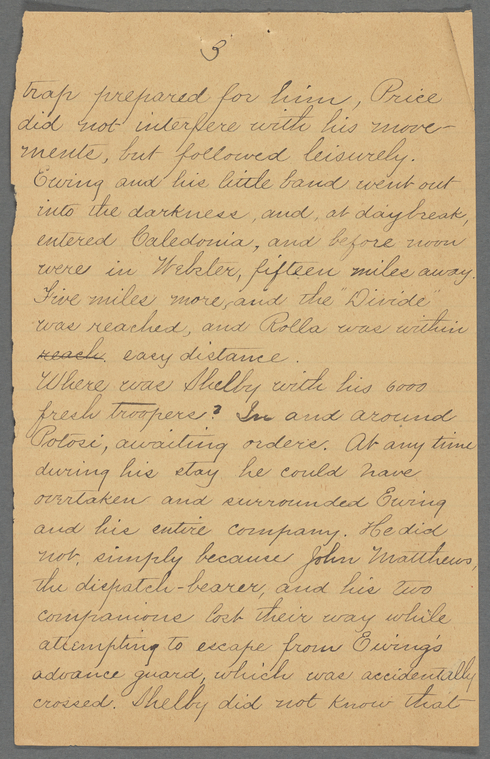 3
trap prepared for him, Price
did not interfere with his move-
ments, but followed leisurely.
Ewing and his little band went out
into the darkness, and, at daybreak,
entered Caledonia, and before noon
were in Webster, fifteen miles away.
Five miles more, and the "Divide"
was reached, and Rolla was within
reach easy distance.
Where was Shelby with his 6000
fresh troopers? In and around
Potosi, awaiting orders. At any time
during his stay he could have
overtaken and surrounded Ewing
and his entire company. He did
not, simply because John Matthews,
the dispatch-bearer, and his two
companions lost their way while
attempting to escape from Ewing's
advance guard, which was accidentally
crossed. Shelby did not know that